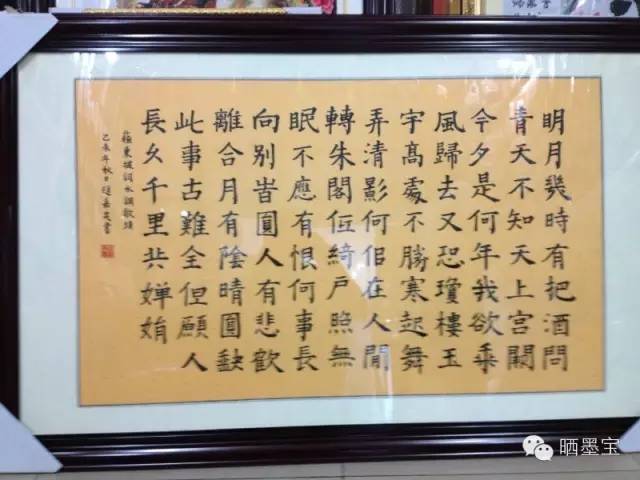 明月幾時有把酒問
青天不知天上宮闕
今夕是何年我欲乘
風歸去又恐瓊樓玉
宇高處不勝寒起舞
弄清影何佀在人間
轉朱閣低綺戶照無
眠不應有恨何事長
向别旹圓人有悲歡
離合月有陰晴圓缺
此事古難全但願人
長久千里共嬋娟
蘇東坡詞水調歌頭
年秋日趙書
晒墨宝